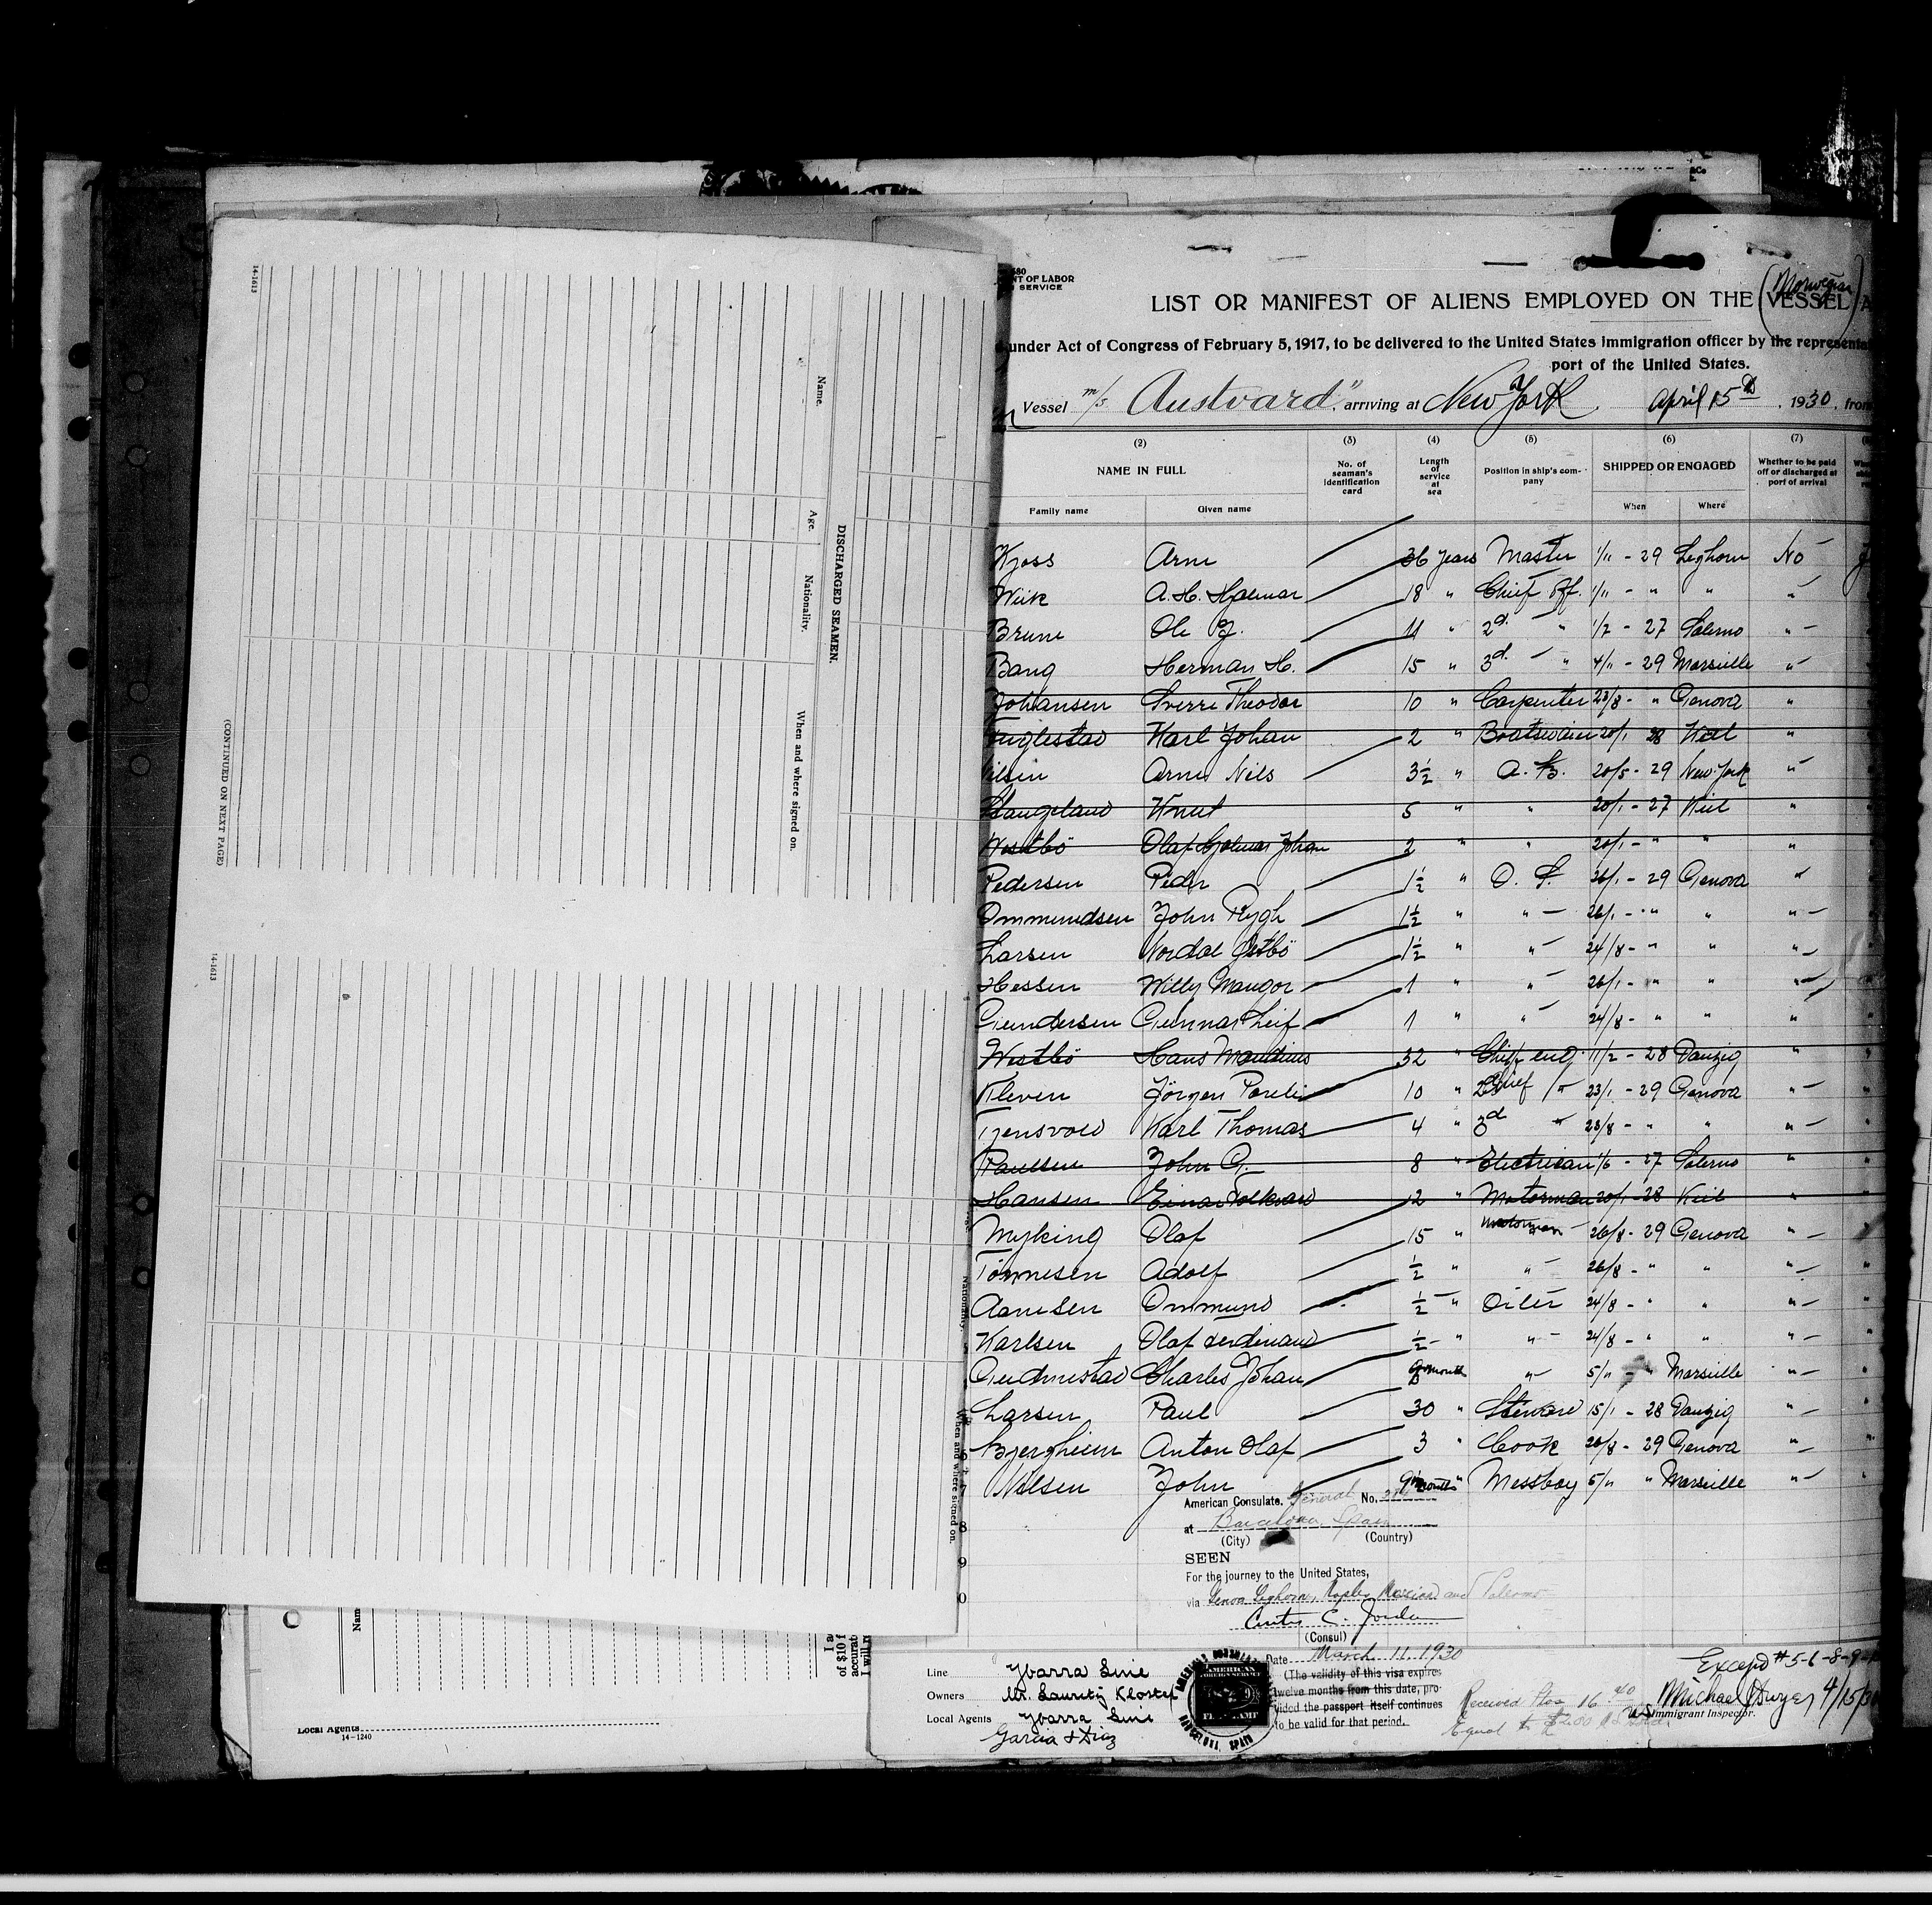 14-1613
Name.
Age.
Nationality.
When and where signed on.
DISCHARGED SEAMEN.
(CONTINUED ON NEXT PAGE)
14-1613
Nationality.
When and where signed on.
680
NT OF LABOR
SERVICE
LIST OR MANIFEST OF ALIENS EMPLOYED ON THE VESSEL A
(Norwegian)
under Act of Congress of February 5, 1917, to be delivered to the United States immigration officer by the representa
port of the United States.
Vessel m/s Austvard", arriving at New York, April 15th, 1930, from
(2) (3) (4) (5) (6) (7)
NAME IN FULL No. of seaman's identification card Length of service at sea Position in ship's company SHIPPED OR ENGAGED Whether to be paid off or discharged at port of arrival
Family name Given name When Where
Kjoss Arne 36 years Master 1/11 - 29 Leghorn No
Wiik A. H. Hjalmar 18 " Chief Off. 1/11 - " "  "
Brune Ole J. 11 " 2d. " 1/7 - 27 Salerno "
Bang Herman H. 15 " 3d. " 4/11 - 29 Marseille "
Johansen Sverre Theodor 10 " Carpenter 23/8 - " Genova "
Karl Johan 2 " Boatswain 20/1 28 Kiel "
Nilsen Arne Nils 3½ " A. B. 20/5 - 29 New-York "
Haugeland Knut 5 " " 20/1 - 27 Kiel "
Westbö Olaf Hjalmar Johan 2 " " 20/1 - " " "
Pedersen Peder 1½ " O. S. 26/1 - 29 Genova "
Ommundsen John Rygh 1½ " " 26/1 - " " "
Larsen Nordal Östbö 1½ " " 24/8 - " " "
Hessen Willy Maugor 1 " " 26/1 - " " "
Gundersen Gunnar Leif 1 " " 24/8 - " " "
Westbö Hans Mandius 32 " Chief eng. 11/2 - 28 Danzig "
Kleven Jörgen 10 " Chief " 23/1 - 29 Genova "
Tjensvold Karl Thomas 4 " 3d " 23/8 - " " "
Paulsen John G. 8 " Electrician 1/6 - 27 Salerno "
Hansen Einar Folkvard 12 " Motorman 20/1 - 28 Kiel "
Myking Olaf 15 " Motorman 26/8 - 29 Genova "
Tönnesen Adolf ½ " " 26/8 - " " "
Aanesen Ommund ½ " Oiler 24/8 - " " "
Karlsen Olaf Ferdinand ½ " " 24/8 - " " "
Gudmestad Charles Johan month " 5/11 - " Marseille "
Larsen Paul 30 " Steward 15/1 - 28 Danzig "
Bjergheim Anton Olaf 3 " Cook 26/8 - 29 Genova "
Nilsen John 9 months " Messboy 5/11 " Marseille "
8
9
0
American Consulate. General No.
at Barcelona, Spain
(City) (Country)
SEEN
For the journey to the United States,
via Genoa Leghorn, Naples and Palermo
Curtis C. Jordan
(Consul)
Date March 11. 1930
(The validity of this visa expires
twelve months from this date, pro-
vided the passport itself continues
to be valid for that period.
AMERICAN
FOREIGN SERVICE
FEE STAMP
BARCELONA, SPAIN
Line Ybarra Line
Owners Mr. Lauritz Kloster
Local Agents Ybarra Line
Garcia & Diaz
Received Ptas 16.40
Equal to $2.00 U.S. Gold.
Except # 5-6-8-9-
Michael Dwyer 4/15/30
Immigrant Inspector.
Nam
I a
of $10 f
accurat
I will re
Local Agents
14-1240